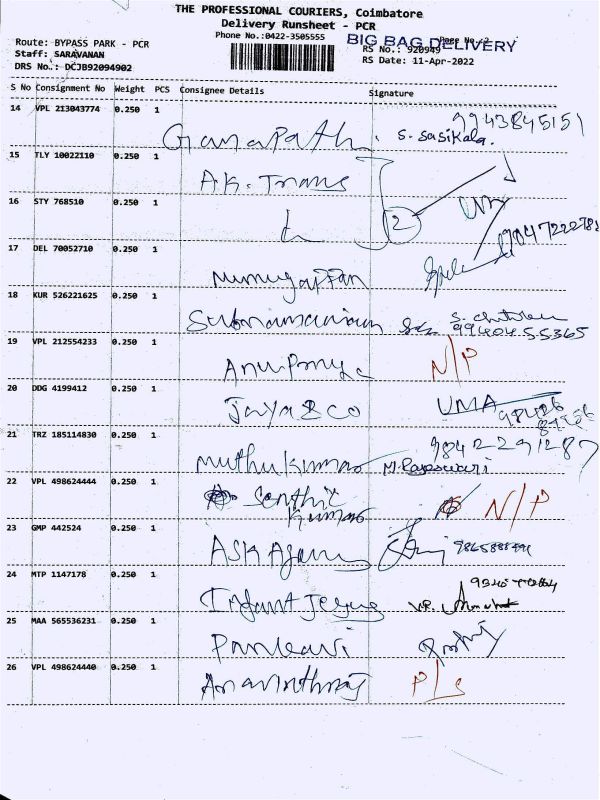 THE PROFESSIONAL COURIERS, Coimbatore
Delivery Runsheet - PCR
Phone No.:0422-3505555
BIG BAG DELIVERY
Route: BYPASS PARK - PCR
Staff: SARAVANAN
DRS No.: DCJB92094902
RS No.: 920949
RS Date: 11-Apr-2022
S No Consignment No Weight PCS Consignee Details Signature
14 VPL 213043774 0.250 1
Ganapath S. Sasikala. 9943845151
15 TLY 10022110 0.250 1
A.K. Trans
16 STY 768510 0.250 1
2
17 DEL 70052710 0.250 1
Murugappan
18 KUR 526221625 0.250 1
Subramaniam 9940455365
19 VPL 212554233 0.250 1
N/P
20 DDG 4199412 0.250 1
Jaya & Co UMA
21 TRZ 185114830 0.250 1
Muthukumar M. Rajeswari 9842291287
22 VPL 498624444 0.250 1
Senthil
Kumar N/P
23 GMP 442524 0.250 1
24 MTP 1147178 0.250 1
Infant Jesus
25 MAA 565536231 0.250 1
26 VPL 498624440 0.250 1
Aravinthraj P/S